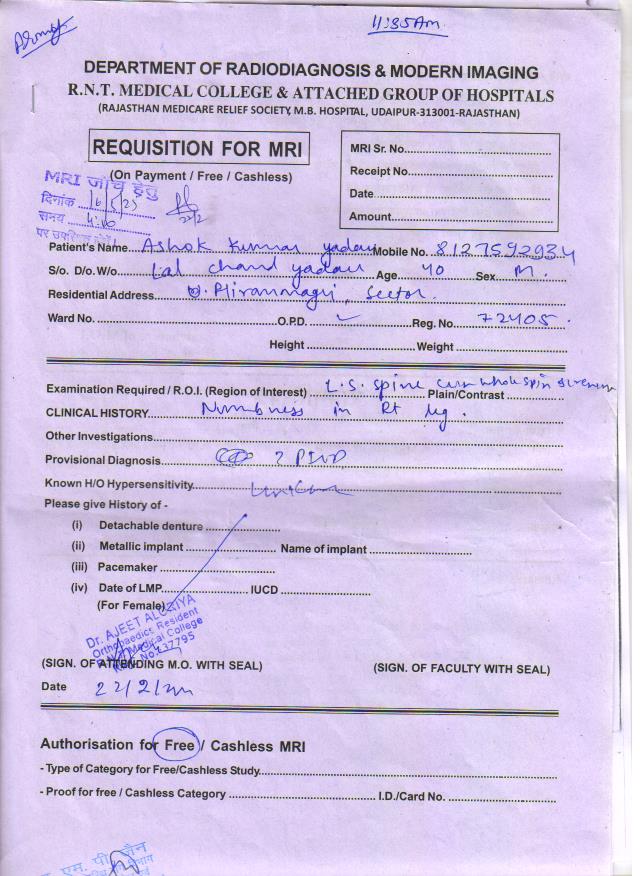 11:35 Am.
DEPARTMENT OF RADIODIAGNOSIS & MODERN IMAGING
R.N.T. MEDICAL COLLEGE & ATTACHED GROUP OF HOSPITALS
(RAJASTHAN MEDICARE RELIEF SOCIETY, M.B. HOSPITAL, UDAIPUR-313001-RAJASTHAN)
REQUISITION FOR MRI
(On Payment / Free / Cashless)
MRI Sr. No.
Receipt No.
Date
Amount
MRI जाँच हेतु
दिनांक
समय 4:00
Patient's Name Ashok Kumar yadav Mobile No. 8127592934
S/o. D/o. W/o Lal chand yadav Age 40 Sex M.
Residential Address Hirannagri, Sector.
Ward No. O.P.D. ✓ Reg. No. 72405.
Height Weight
Examination Required / R.O.I. (Region of Interest) L.S. spine cum whole spin screening Plain/Contrast
CLINICAL HISTORY Numbness in Rt leg.
Other Investigations
Provisional Diagnosis ? PIVD
Known H/O Hypersensitivity
Please give History of -
(i) Detachable denture
(ii) Metallic implant Name of implant
(iii) Pacemaker
(iv) Date of LMP IUCD
(For Female)
Dr. AJEET
Orthopaedict Resident
Medical College
Reg. No. 37795
(SIGN. OF ATTENDING M.O. WITH SEAL) (SIGN. OF FACULTY WITH SEAL)
Date 22/2/
Authorisation for Free / Cashless MRI
- Type of Category for Free/Cashless Study
- Proof for free / Cashless Category I.D./Card No.
एम. पी. जैन